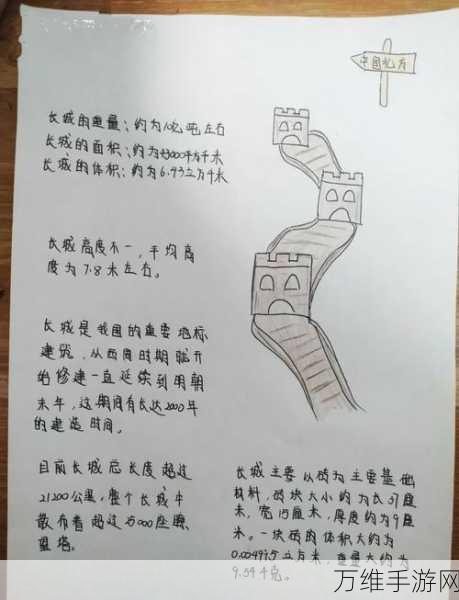 中国北方
长城的重量：约为10亿吨左右
长城的面积：约为43000平方千米
长城的体积：约为6.43立方千米
长城高度不一，平均高
度为7.8米左右。
长城是我国的重要地标
建筑，从西周时期就开
始修建一直延续到明朝
末年，这期间有长达2000年
的建造时间。
目前长城总长度超过
21200公里，整个长城中
散布着超过15000座瞭
望塔。
长城主要以砖为主要基础
材料，砖块大小约为长37厘
米，宽15厘米，厚度约为9厘
米。一块砖的体积大约为
0.004995立方米，重量大约为
9.54千克。
万维手游网